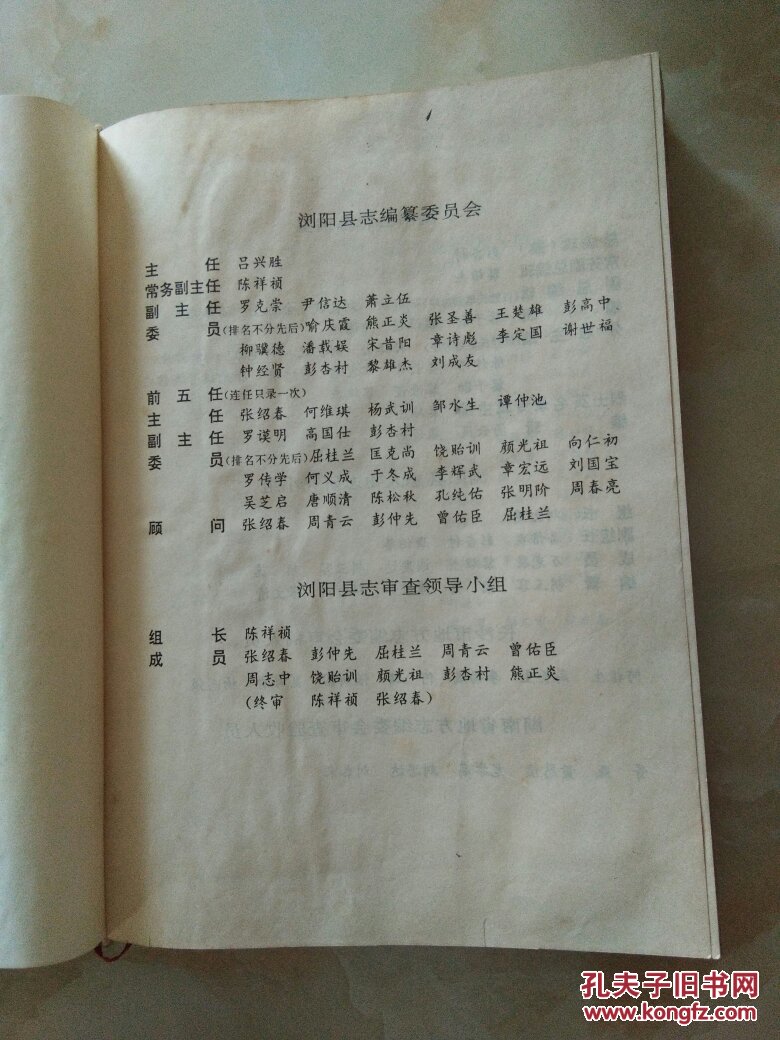 浏阳县志编纂委员会
主 任 吕兴胜
常务副主任 陈祥祯
副 主 任 罗克崇 尹信达 萧立伍
委 员(排名不分先后)喻庆霞 熊正炎 张圣善 王楚雄 彭高中
柳骥德 潘载娱 宋昔阳 章诗彪 李定国 谢世福
钟经贤 彭杏村 黎雄杰 刘成友
前 五 任(连任只录一次)
主 任 张绍春 何维琪 杨武训 邹水生 谭仲池
副 主 任 罗谟明 高国仕 彭杏村
委 员(排名不分先后)屈桂兰 匡克尚 饶贻训 颜光祖 向仁初
罗传学 何义成 于冬成 李辉武 章宏远 刘国宝
吴芝启 唐顺清 陈松秋 孔纯佑 张明阶 周春亮
顾 问 张绍春 周青云 彭仲先 曾佑臣 屈桂兰
浏阳县志审查领导小组
组 长 陈祥祯
成 员 张绍春 彭仲先 屈桂兰 周青云 曾佑臣
周志中 饶贻训 颜光祖 彭杏村 熊正炎
(终审 陈祥祯 张绍春)
孔夫子旧书网
www.kongfz.com